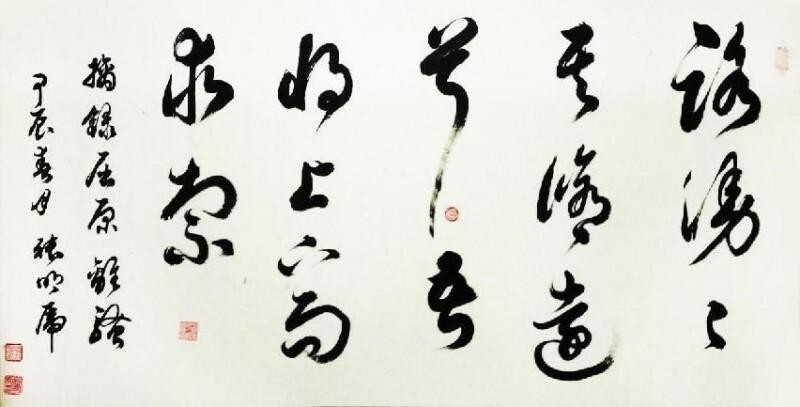 路漫〻
其修遠
兮吾
将上下而
求索
摘録屈原離騷
甲辰春月 張明